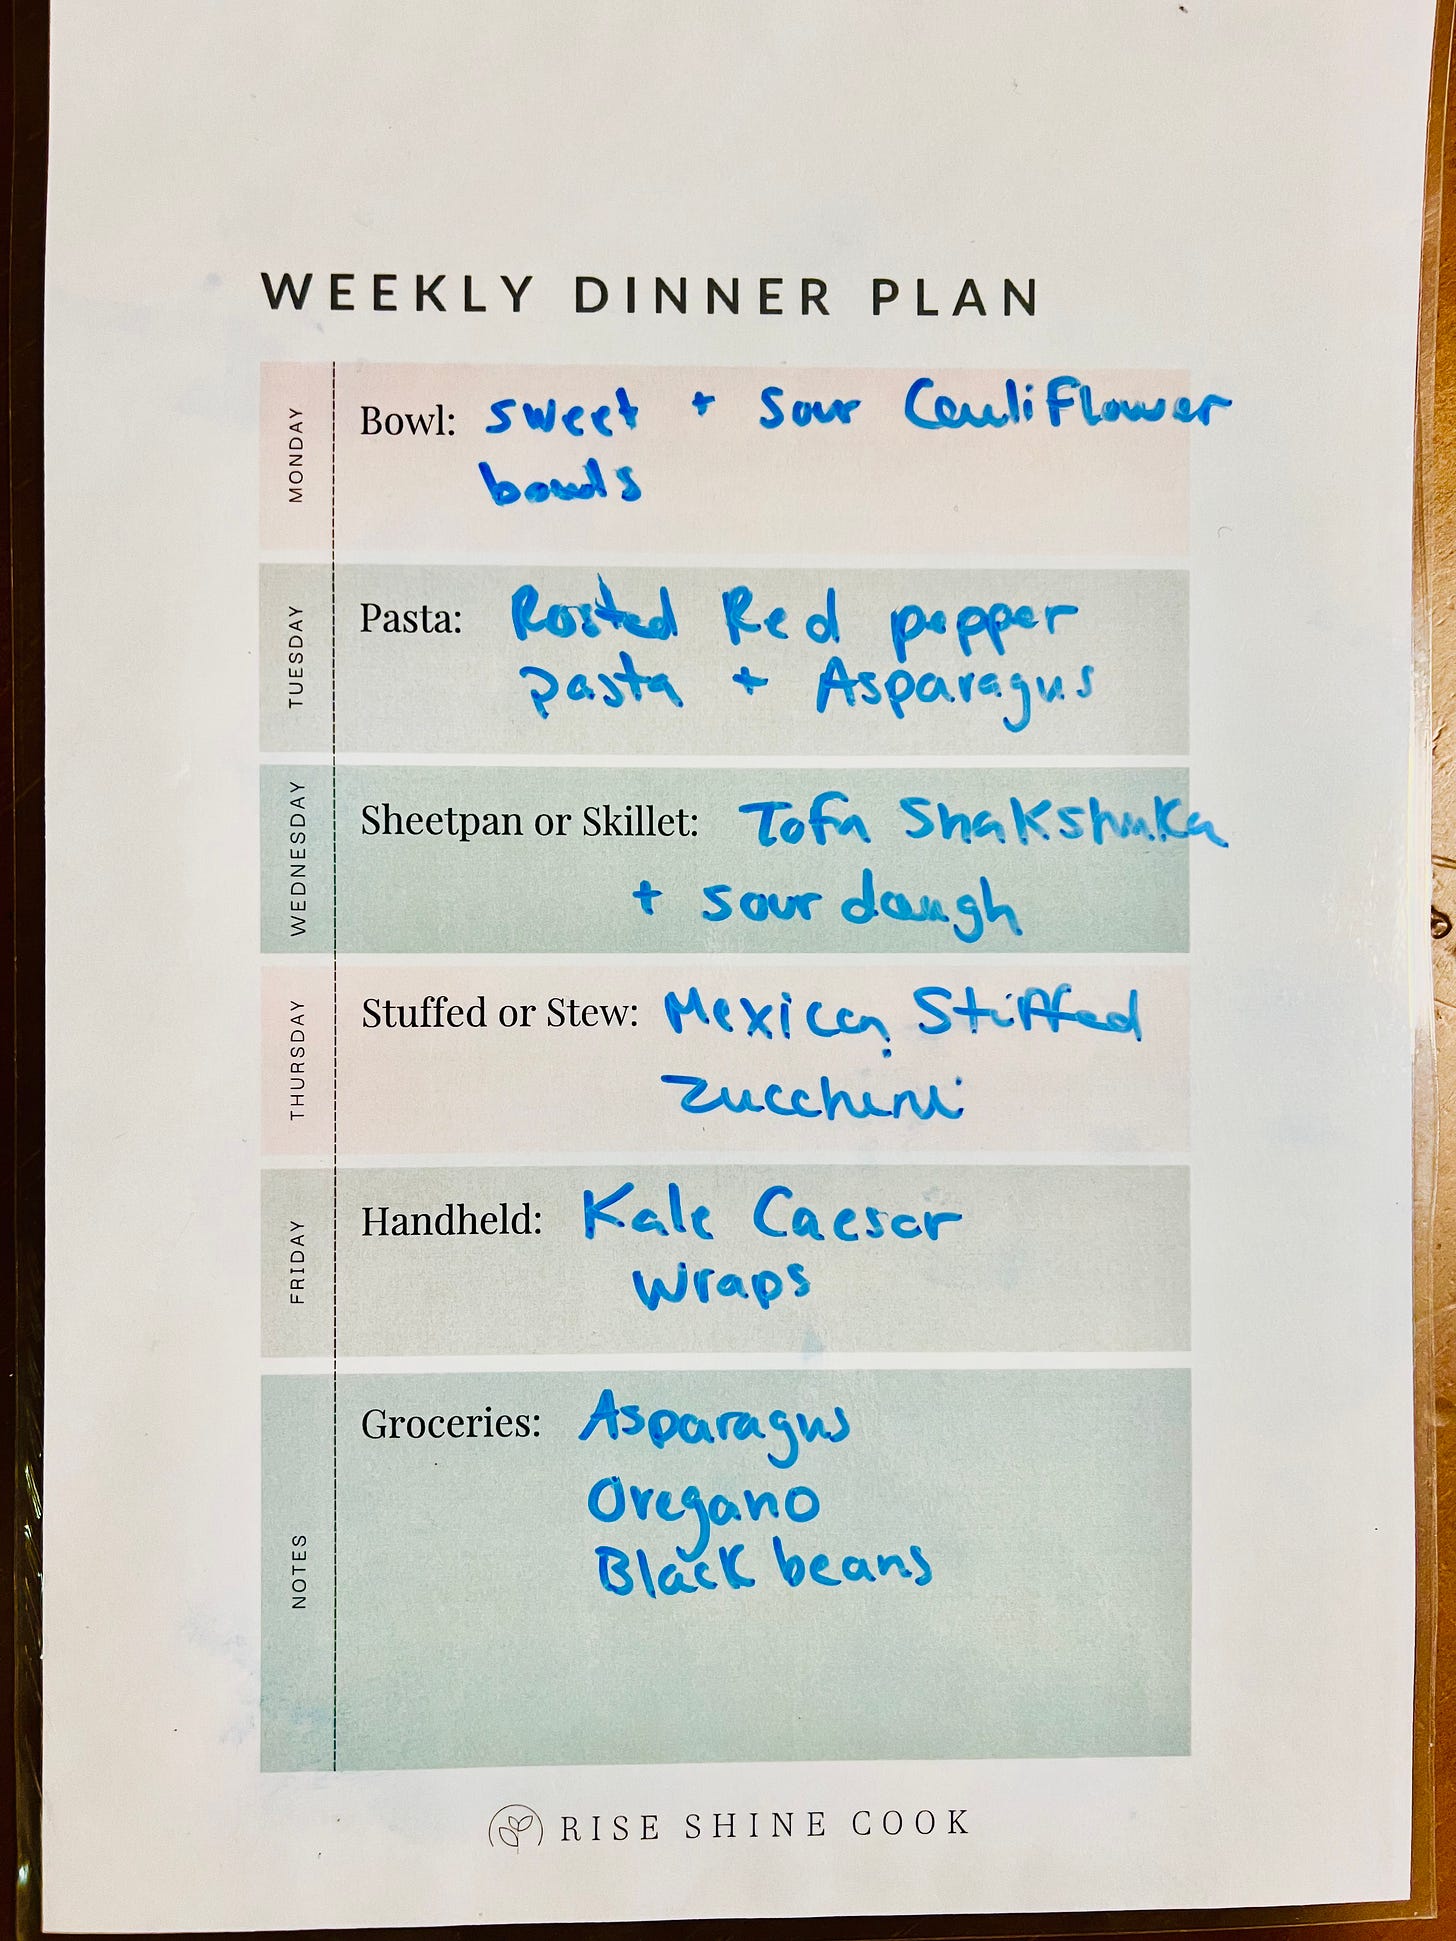 WEEKLY DINNER PLAN
MONDAY
Bowl: sweet + sour CauliFlower
bowls
TUESDAY
Pasta: Rosted Red pepper
pasta + Asparagus
WEDNESDAY
Sheetpan or Skillet: Tofu Shakshuka
+ sour dough
THURSDAY
Stuffed or Stew: Mexican Stuffed
Zucchini
FRIDAY
Handheld: Kale Caesar
wraps
NOTES
Groceries: Asparagus
Oregano
Black beans
RISE SHINE COOK